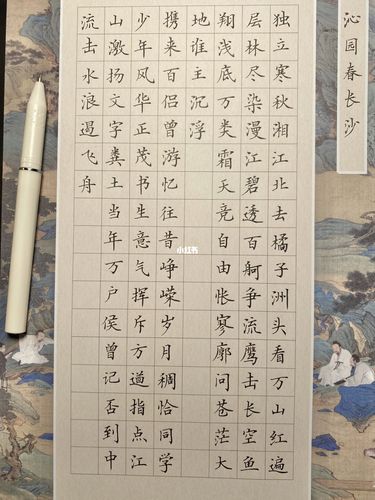 沁园春长沙
独立寒秋湘江北去橘子洲头看万山红遍
层林尽染漫江碧透百舸争流鹰击长空鱼
翔浅底万类霜天竞自由怅寥廓问苍茫大
地谁主沉浮
携来百侣曾游忆往昔峥嵘岁月稠恰同学
少年风华正茂书生意气挥斥方遒指点江
山激扬文字粪土当年万户侯曾记否到中
流击水浪遏飞舟
小红书